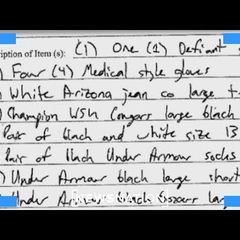 ription of Item (s): (1) One (1) Defiant
) Four (4) Medical style gloves
) White Arizona jean co large t-
) Champion WSH Cougars large black
Pair of black and white size 13
Pair of black Under Armour socks
) Under Armour black large short
Under Armour black boxers lar